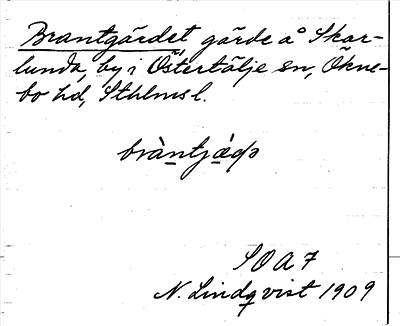 Brantgärdet gärde å Skar-
lunda, by i Östertälje sn,Ökne-
bo hd, Sthlms l.
bràntjáqə
S O A 7
N. Lindqvist 1909